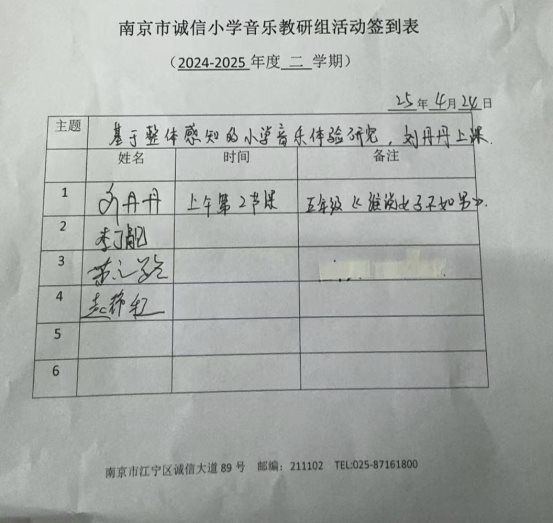 南京市诚信小学音乐教研组活动签到表
（2024-2025 年度 二 学期）
25 年 4 月 24 日
主题 基于整体感知的小学音乐体验研究，刘丹丹上课.
姓名 时间 备注
1 刘丹丹 上午第2节课 五年级《谁说女子不如男》.
2 李
3
4
5
6
南京市江宁区诚信大道 89 号 邮编：211102 TEL:025-87161800